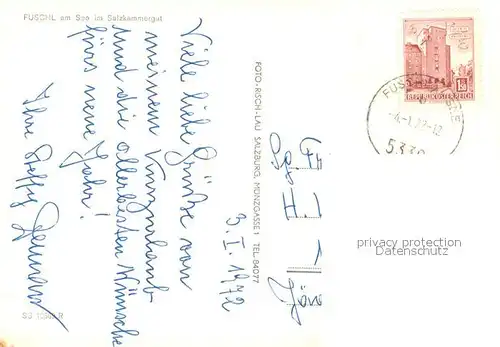 FUSCHL am See im Salzkammergut
Viele liebe Grüße von
meinem Kurzurlaub
und die allerbesten Wünsche
fürs neue Jahr!
Ihre Steffy
3. I. 1972
FOTO-RISCH-LAU SALZBURG, MÜNZGASSE 1 TEL. 84077
1.50
REPUBLIK ÖSTERREICH
FUSCHL
5330
privacy protection
Datenschutz